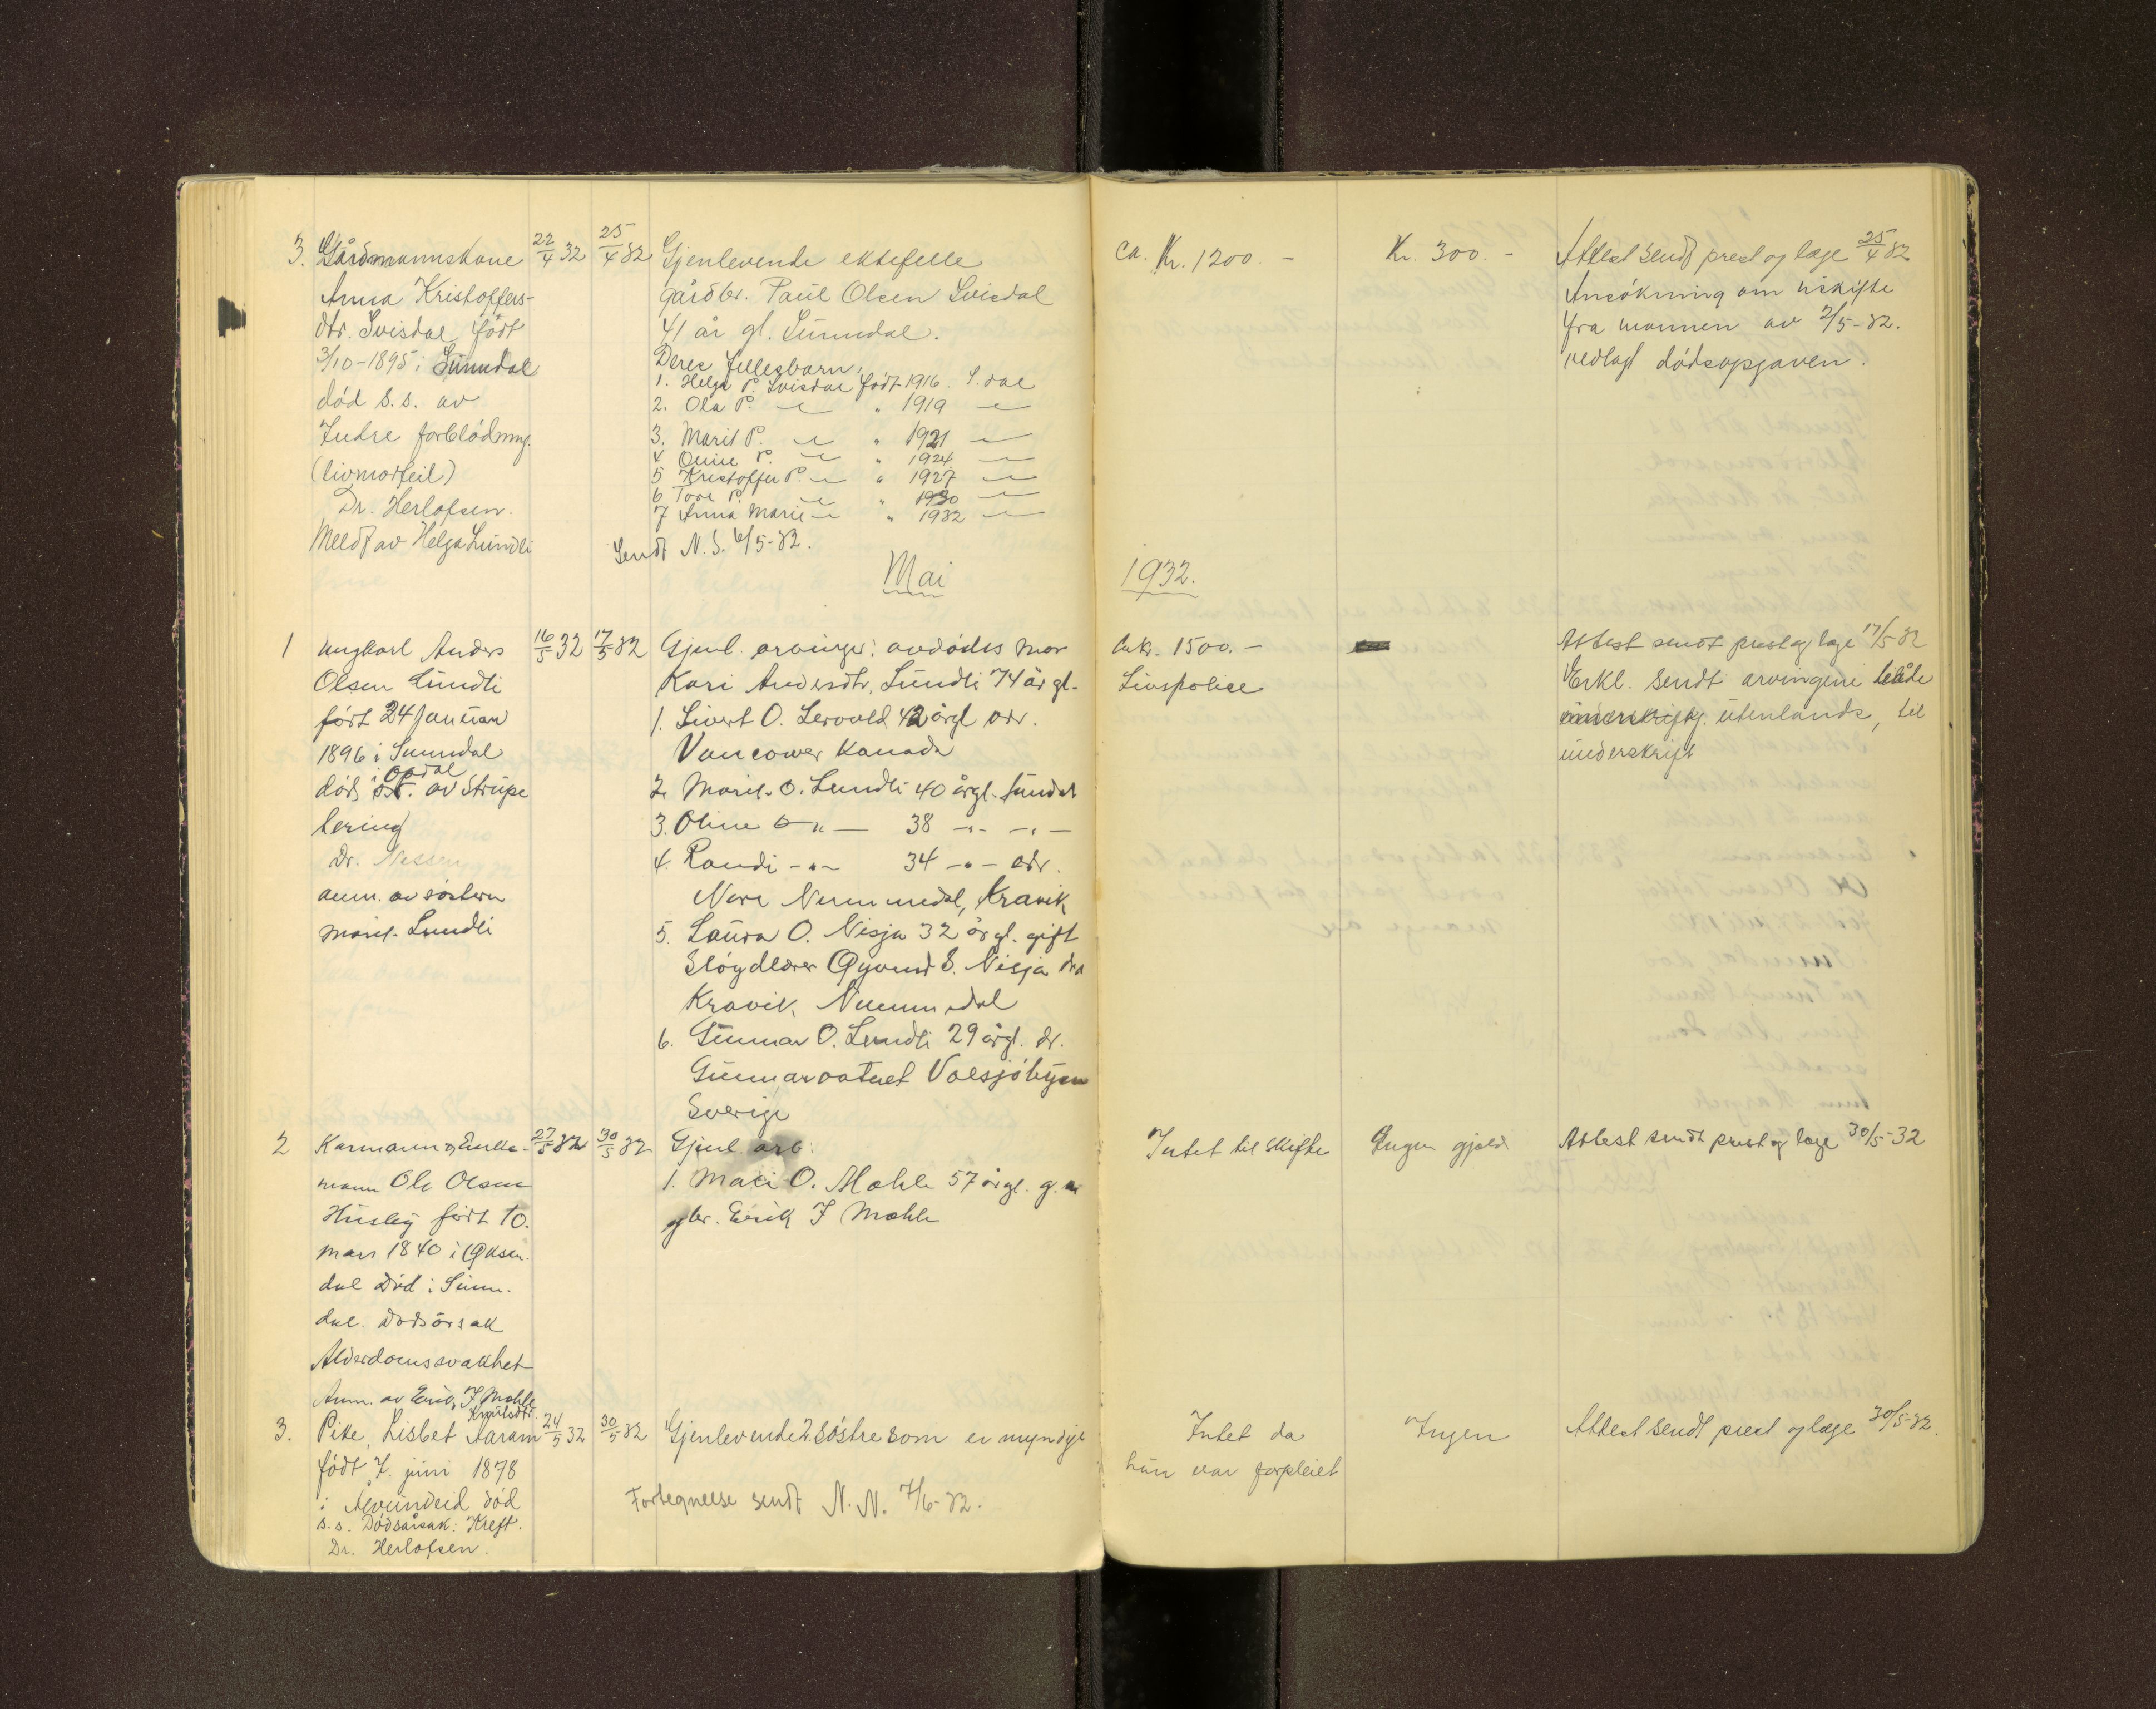 3. Gårdmannskone 22/4 32 25/4 32 Gjenlevende ektefelle ca. Kr. 1200.- Kr. 300.- Attest sendt prest og læge 25/4 32
Anna Kristoffers- gårdbr. Paul Olsen Svisdal Ansökning om uskifte
dtr. Svisdal født 41 år gl. Sunndal. fra mannen av 2/5-32.
3/10-1895 i Sunndal Deres fellesbarn: vedlagt dødsopgaven.
død s.s. av 1. Helga P. Svisdal født 1916. S.dal
Indre forblødning. 2. Ola P. —"— " 1919 —"—
(livmorfeil) 3. Marit P. —"— " 1921 —"—
Dr. Herlofsen. 4 Oline P. —"— " 1924 —"—
Meldt av Helga Lundli 5 Kristoffer P. —"— " 1927 —"—
6 Tore P. —"— " 1930 —"—
7 Anna Marie —"— " 1932 —"—
Sendt N.S. 6/5-32.
Mai 1932.
1 Ungkarl Anders 16/5 32 17/5 32 Gjenl. arvinger: avdødes mor Ca kr. 1500.- Attest sendt prest og læge 17/5-32
Olsen Lundli Kari Andersdtr. Lundli 74 år gl. Livspolice Erkl. sendt arvingene både
født 24 januar 1. Sivert O. Lervold 42 årgl adr. utenlands, til
1896 i Sunndal Vancower Kanada underskrift
død i Opdal av strupe 2. Marit O. Lundli 40 årgl. Sundal
tering 3. Oline O —"— 38 —"— —"—
Dr. Nissen 4. Randi —"— 34 —"— adr.
anm. av søsteren Nore Nummedal, Kravik
Marit Lundli 5. Laura O. Nisja 32 årgl. gift
Sløydlærer Øyvind S. Nisja
Kravik, Nummedal
6. Gunnar O. Lundli 29 årgl. dr.
Gunnarvatnet Valsjøbyen
Sverige
2 Kårmann og Enke- 27/5 32 30/5 32 Gjenl. arv: Intet til skifte Ingen gjeld Attest sendt prest og læge 30/5-32
mann Ole Olsen 1. Mari O. Mæhle 57 årgl. g. m
Husby født 10. gbr. Erik J Mæhle
mars 1840 i Øksen-
dal Død i Sunn-
dal. Dødsårsak
Alderdomssvakhet
Anm. av Erik J Mæhle
3. Pike, Lisbet Knutsdtr. Aaram 24/5 32 30/5 32 Gjenlevende 2 søstre som er myndige Intet da Ingen Attest sendt prest og læge 30/5-32.
født 7. juni 1878 hun var forpleiet
i Ålvundeid død Fortegnelse sendt N.N. 7/6-32.
s.s. Dødsårsak: Kreft.
Dr. Herlofsen.